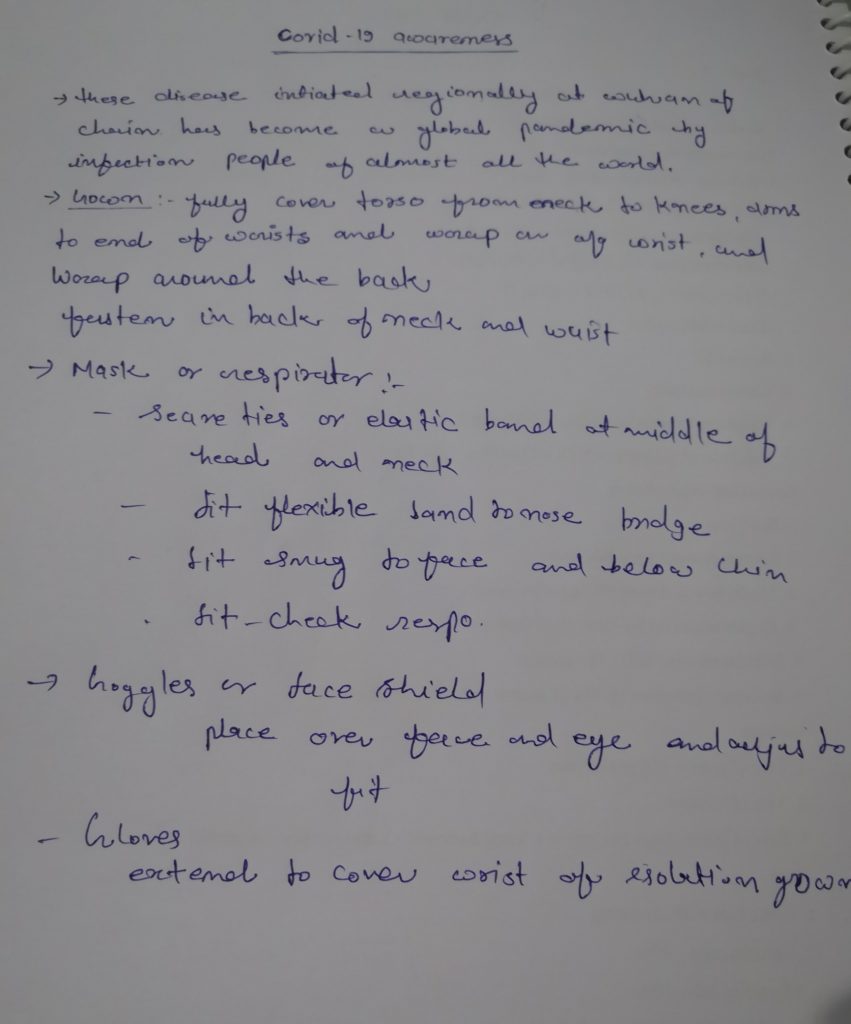 Covid-19 awareness
→ these disease intiated regionally at wuhan of
chain has become a global pandemic by
infection people of almost all the world.
→ Gown :- fully cover torso from neck to knees, arms
to end of wrists and wrap a of wrist, and
Wrap around the back
fasten in back of neck and waist
→ Mask or respirator :-
- Secure ties or elastic band at middle of
head and neck
- fit flexible band to nose bridge
- fit snug to face and below chin
. fit-check respo.
→ Goggles or face shield
place over face and eye and adjus to
fit
- Gloves
extend to cover wrist of isolation gown